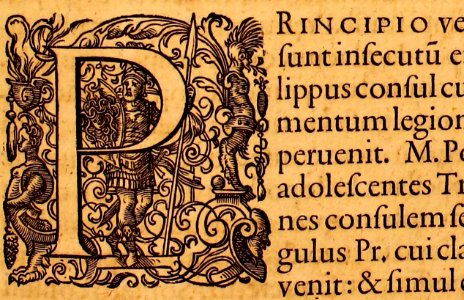 PRINCIPIO ve
ſunt inſecutũ e
lippus conſul cu
mentum legion
peruenit. M. Pe
adoleſcentes Tr
nes conſulem ſe
gulus Pr. cui cla
venit: & ſimul c